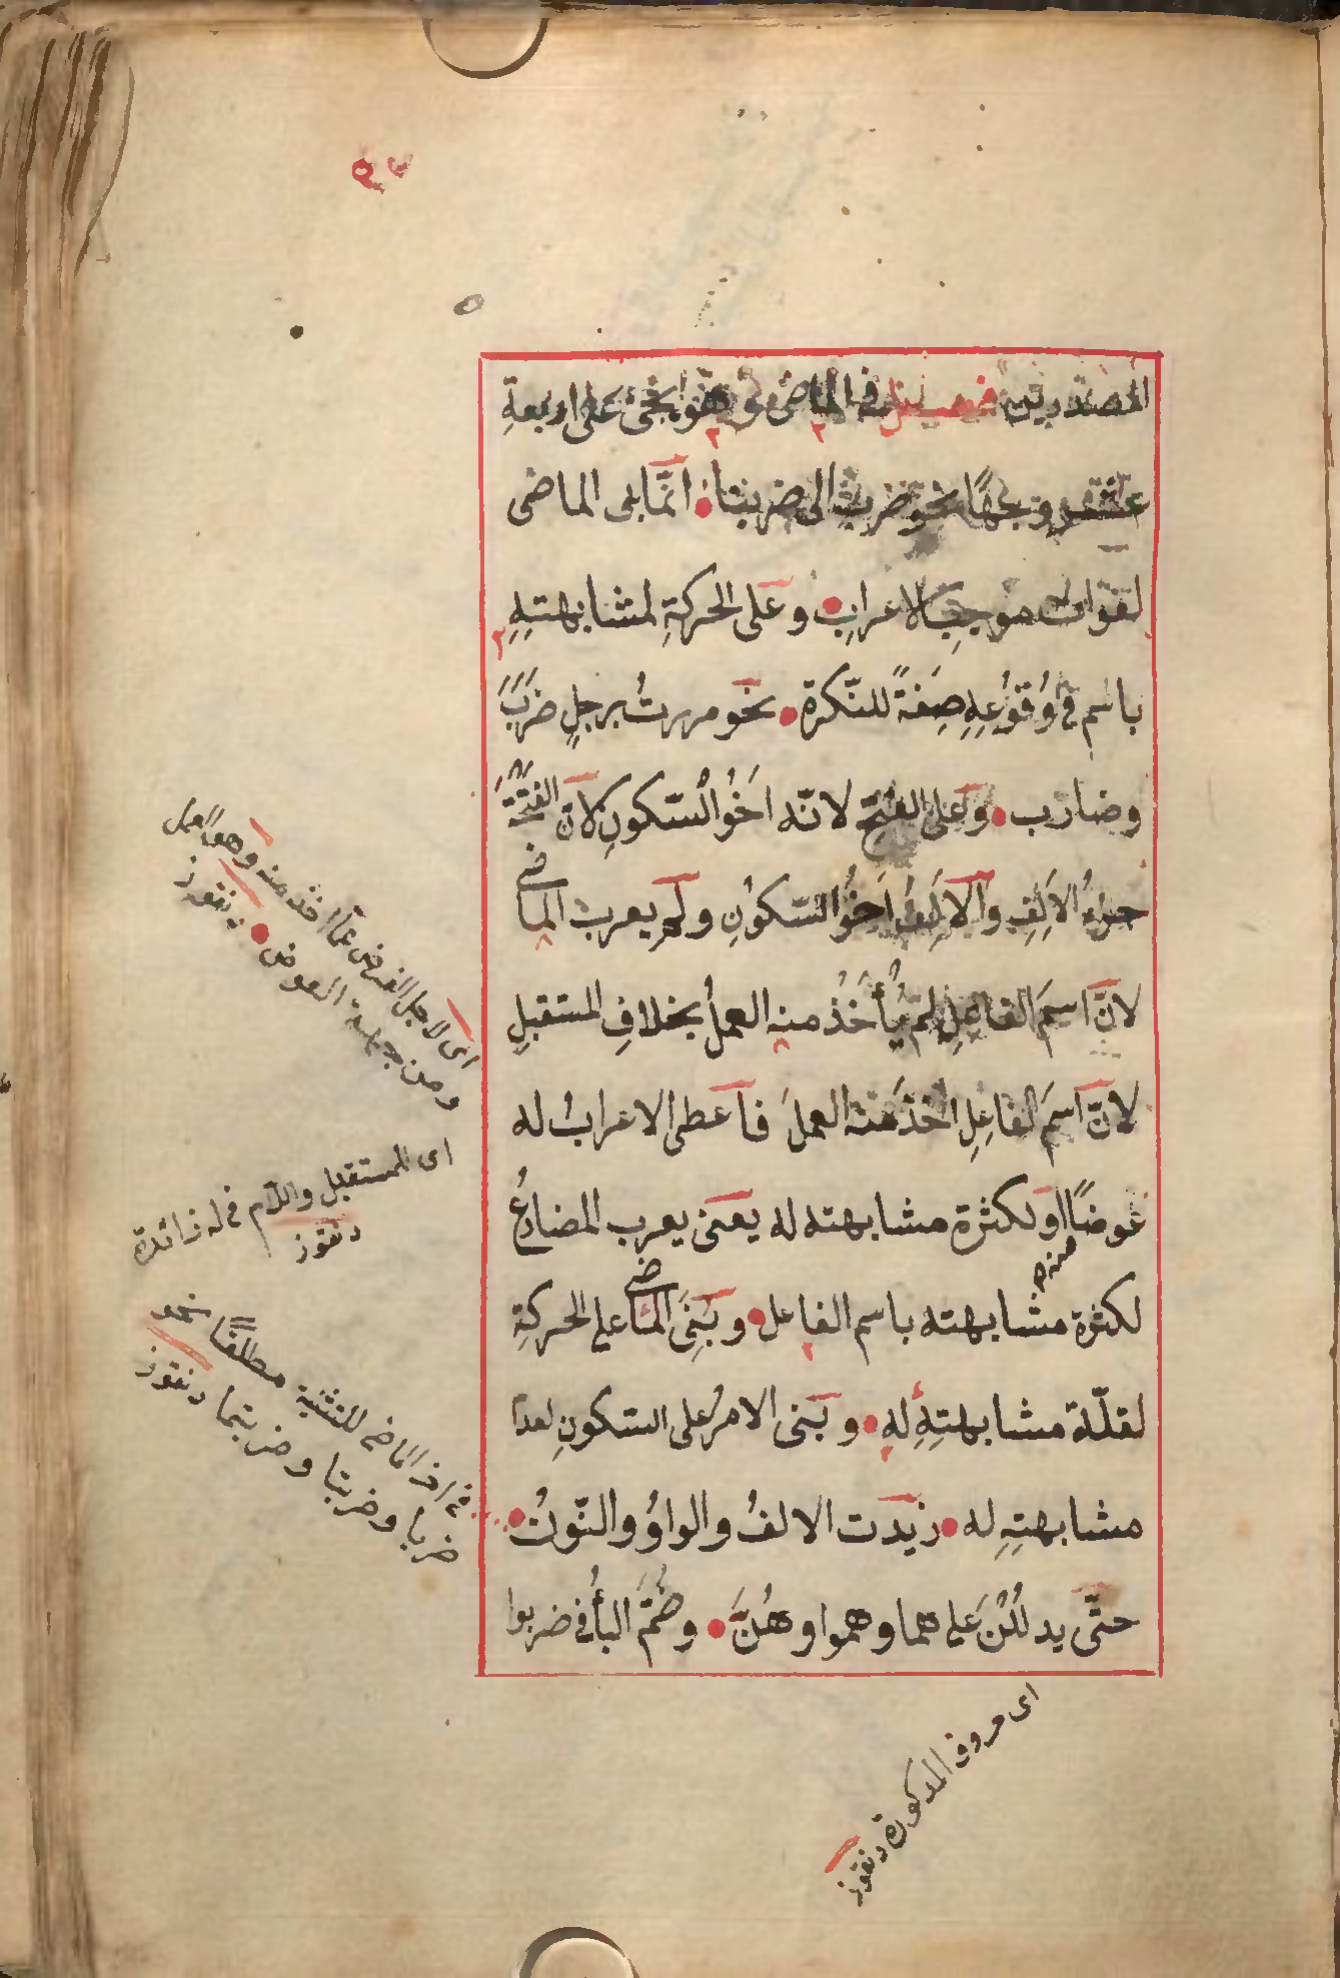 المصدرين فصل فى الماضى وهو يجئ على اربعة
عشر وجها نحو ضرب الى ضربنا انّما بنى الماضى
لفوات موجب الاعراب وعلى الحركةِ لمشابهتِهِ
باسم فى وُقوُعِهِ صِفةً للنّكرة نحو مررتُ برجلٍ ضَرَبَ
وضارب وعلى الفتح لانّه اَخُو السّكونِ لانّ الفتحَة
جزءُ الاَلِفِ والاَلِفُ اَخُو السّكوُنِ ولم يعرب الماضى
لانَّ اسمَ الفاعلِ لم يُأخَذُ منه العملُ بخلافِ المستقبلِ
لانَّ اسمَ الفاعِلِ اخذ منه العملَ فاَعطى الاعرابُ له
عوضًا منه او لكثرة مشابهته له يعنى يعرب المضارعُ
لكثرة مشابهته باسم الفاعل وبَنِىَ الماضى على الحركةِ
لقلّة مشابهتِهِ لهِ وبَنى الامرُ على السكونِ لعدم
مشابهتِهِ له زيدَت الالفُ والواوُ والنّونُ
حتّى يدلُلْنَ على هما وهموا وهُنَّ وضُمَّ البأُ فى ضربوا
اى لاجل الغرض عمّا اخذ منه وهو العمل
ومن جهة العوض دنقوز
اى المستقبل واللام فى له زائدة
دنقوز
فى اخر الماضى للتثنية مطلقًا نحو
ضربا وضربتا وضربتما دنقوز
اى حروف المذكورة دنقوز